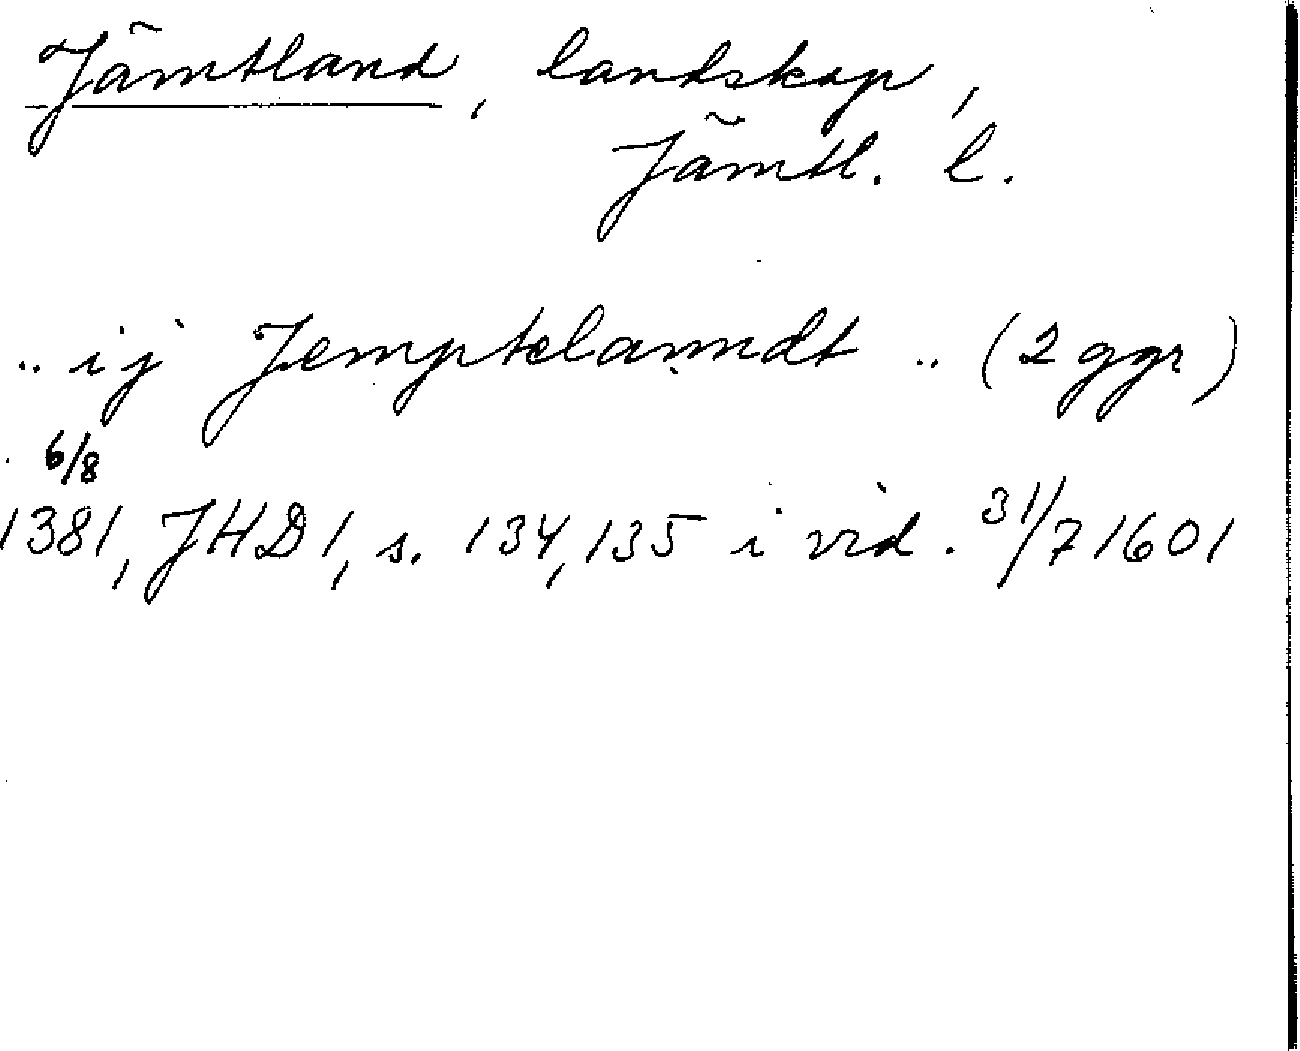 Jämtland, landskap,
Jämtl. l.
.. ij Jemptelanndt .. (2 ggr)
6/8
1381, JHD 1, s. 134, 135 i vid. 31/7 1601